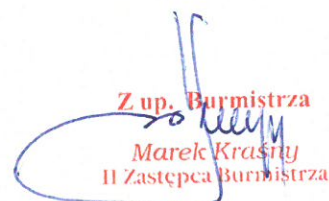 Z up. Burmistrza
Marek Krasny
II Zastępca Burmistrza